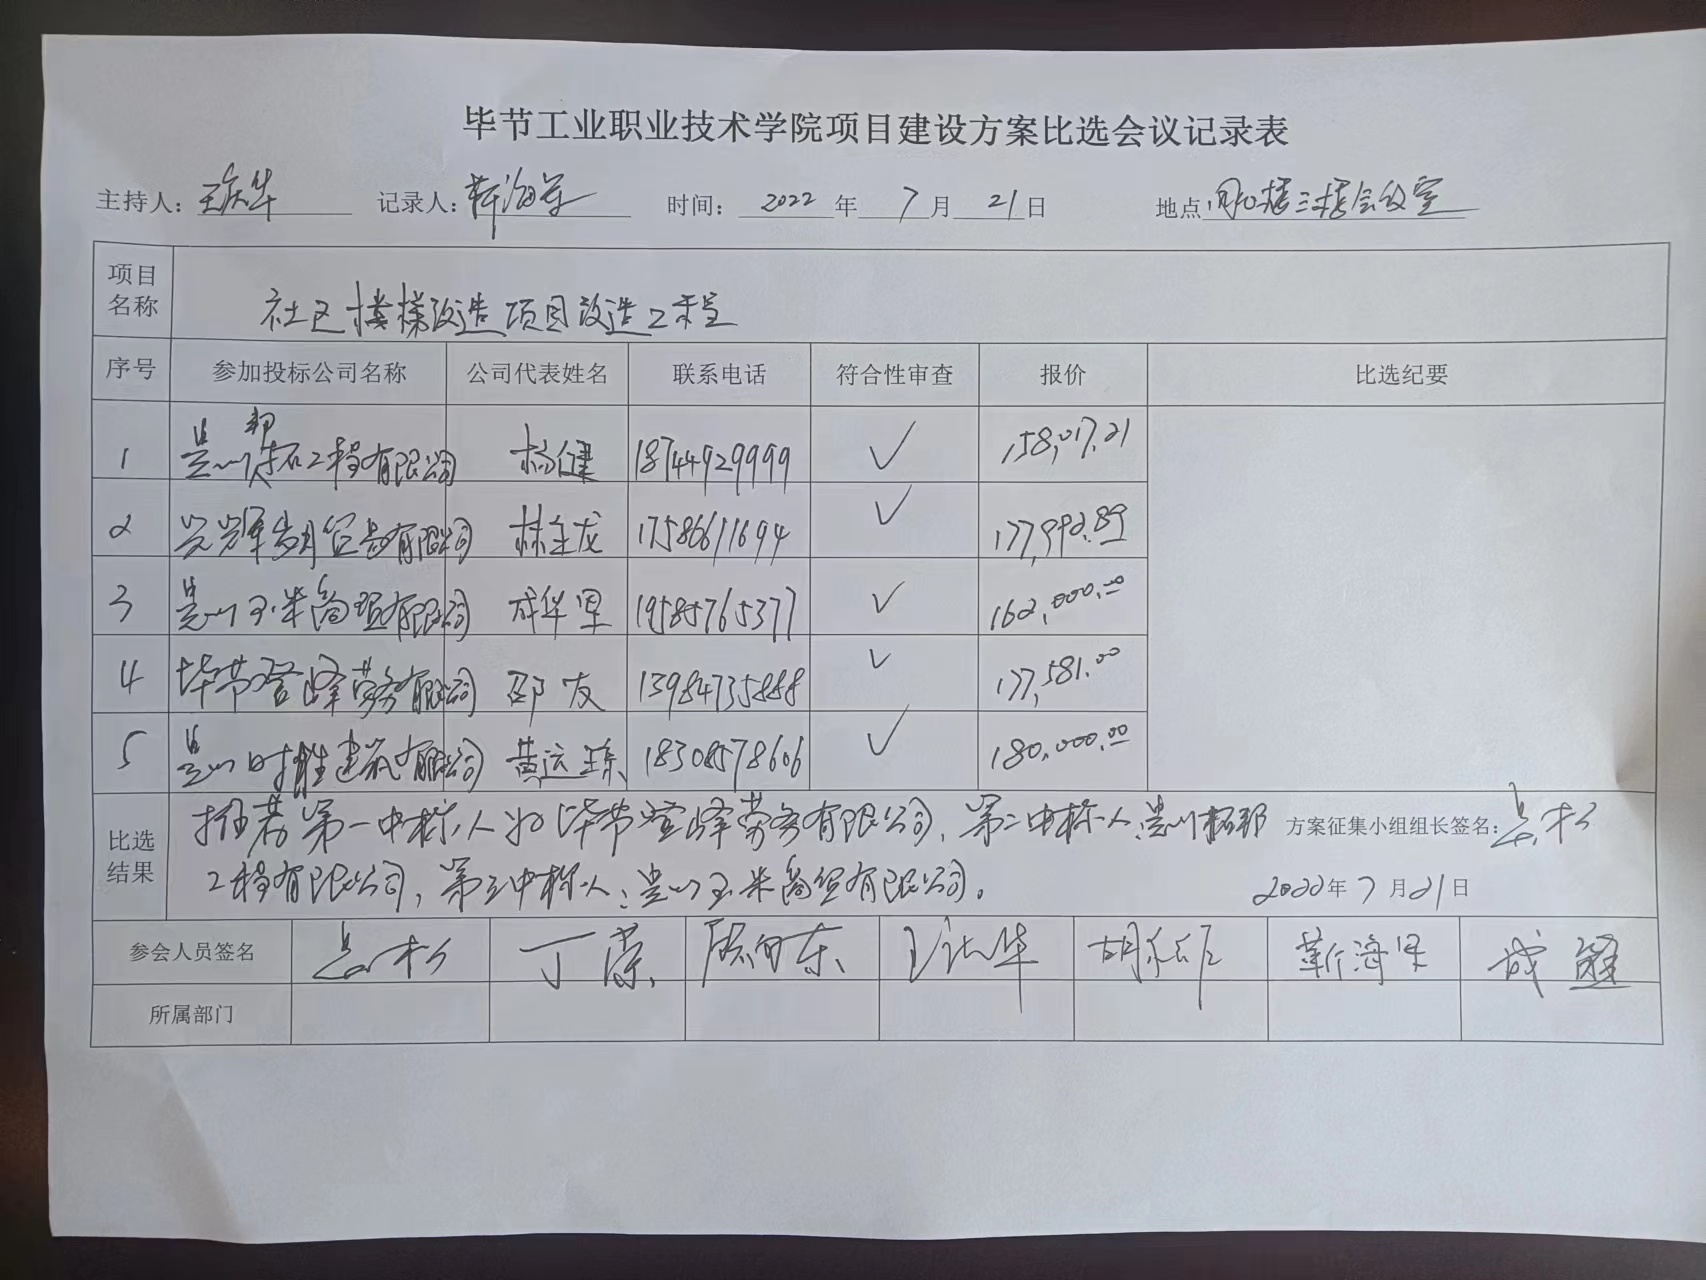 毕节工业职业技术学院项目建设方案比选会议记录表
主持人： 记录人：靳海军 时间：2022年7月21日 地点 楼三楼会议室
项目名称 社区楼梯改造项目改造工程
序号 参加投标公司名称 公司代表姓名 联系电话 符合性审查 报价 比选纪要
1 贵州拓邦工程有限公司 杨健 18744929999 ✓ 158,017.21
2 贸易有限公司 林全龙 17586611694 ✓ 177,992.89
3 贵州玉米商贸有限公司 成华军 19585765377 ✓ 162,000.00
4 毕节登峰劳务有限公司 邵友 13984735888 ✓ 177,581.00
5 贵州时胜建筑有限公司 黄运 18308578606 ✓ 180,000.00
比选结果 推荐第一中标人为毕节登峰劳务有限公司，第二中标人：贵州拓邦 方案征集小组组长签名：
工程有限公司，第三中标人：贵州玉米商贸有限公司。 2022年7月21日
参会人员签名 靳海军 成健
所属部门